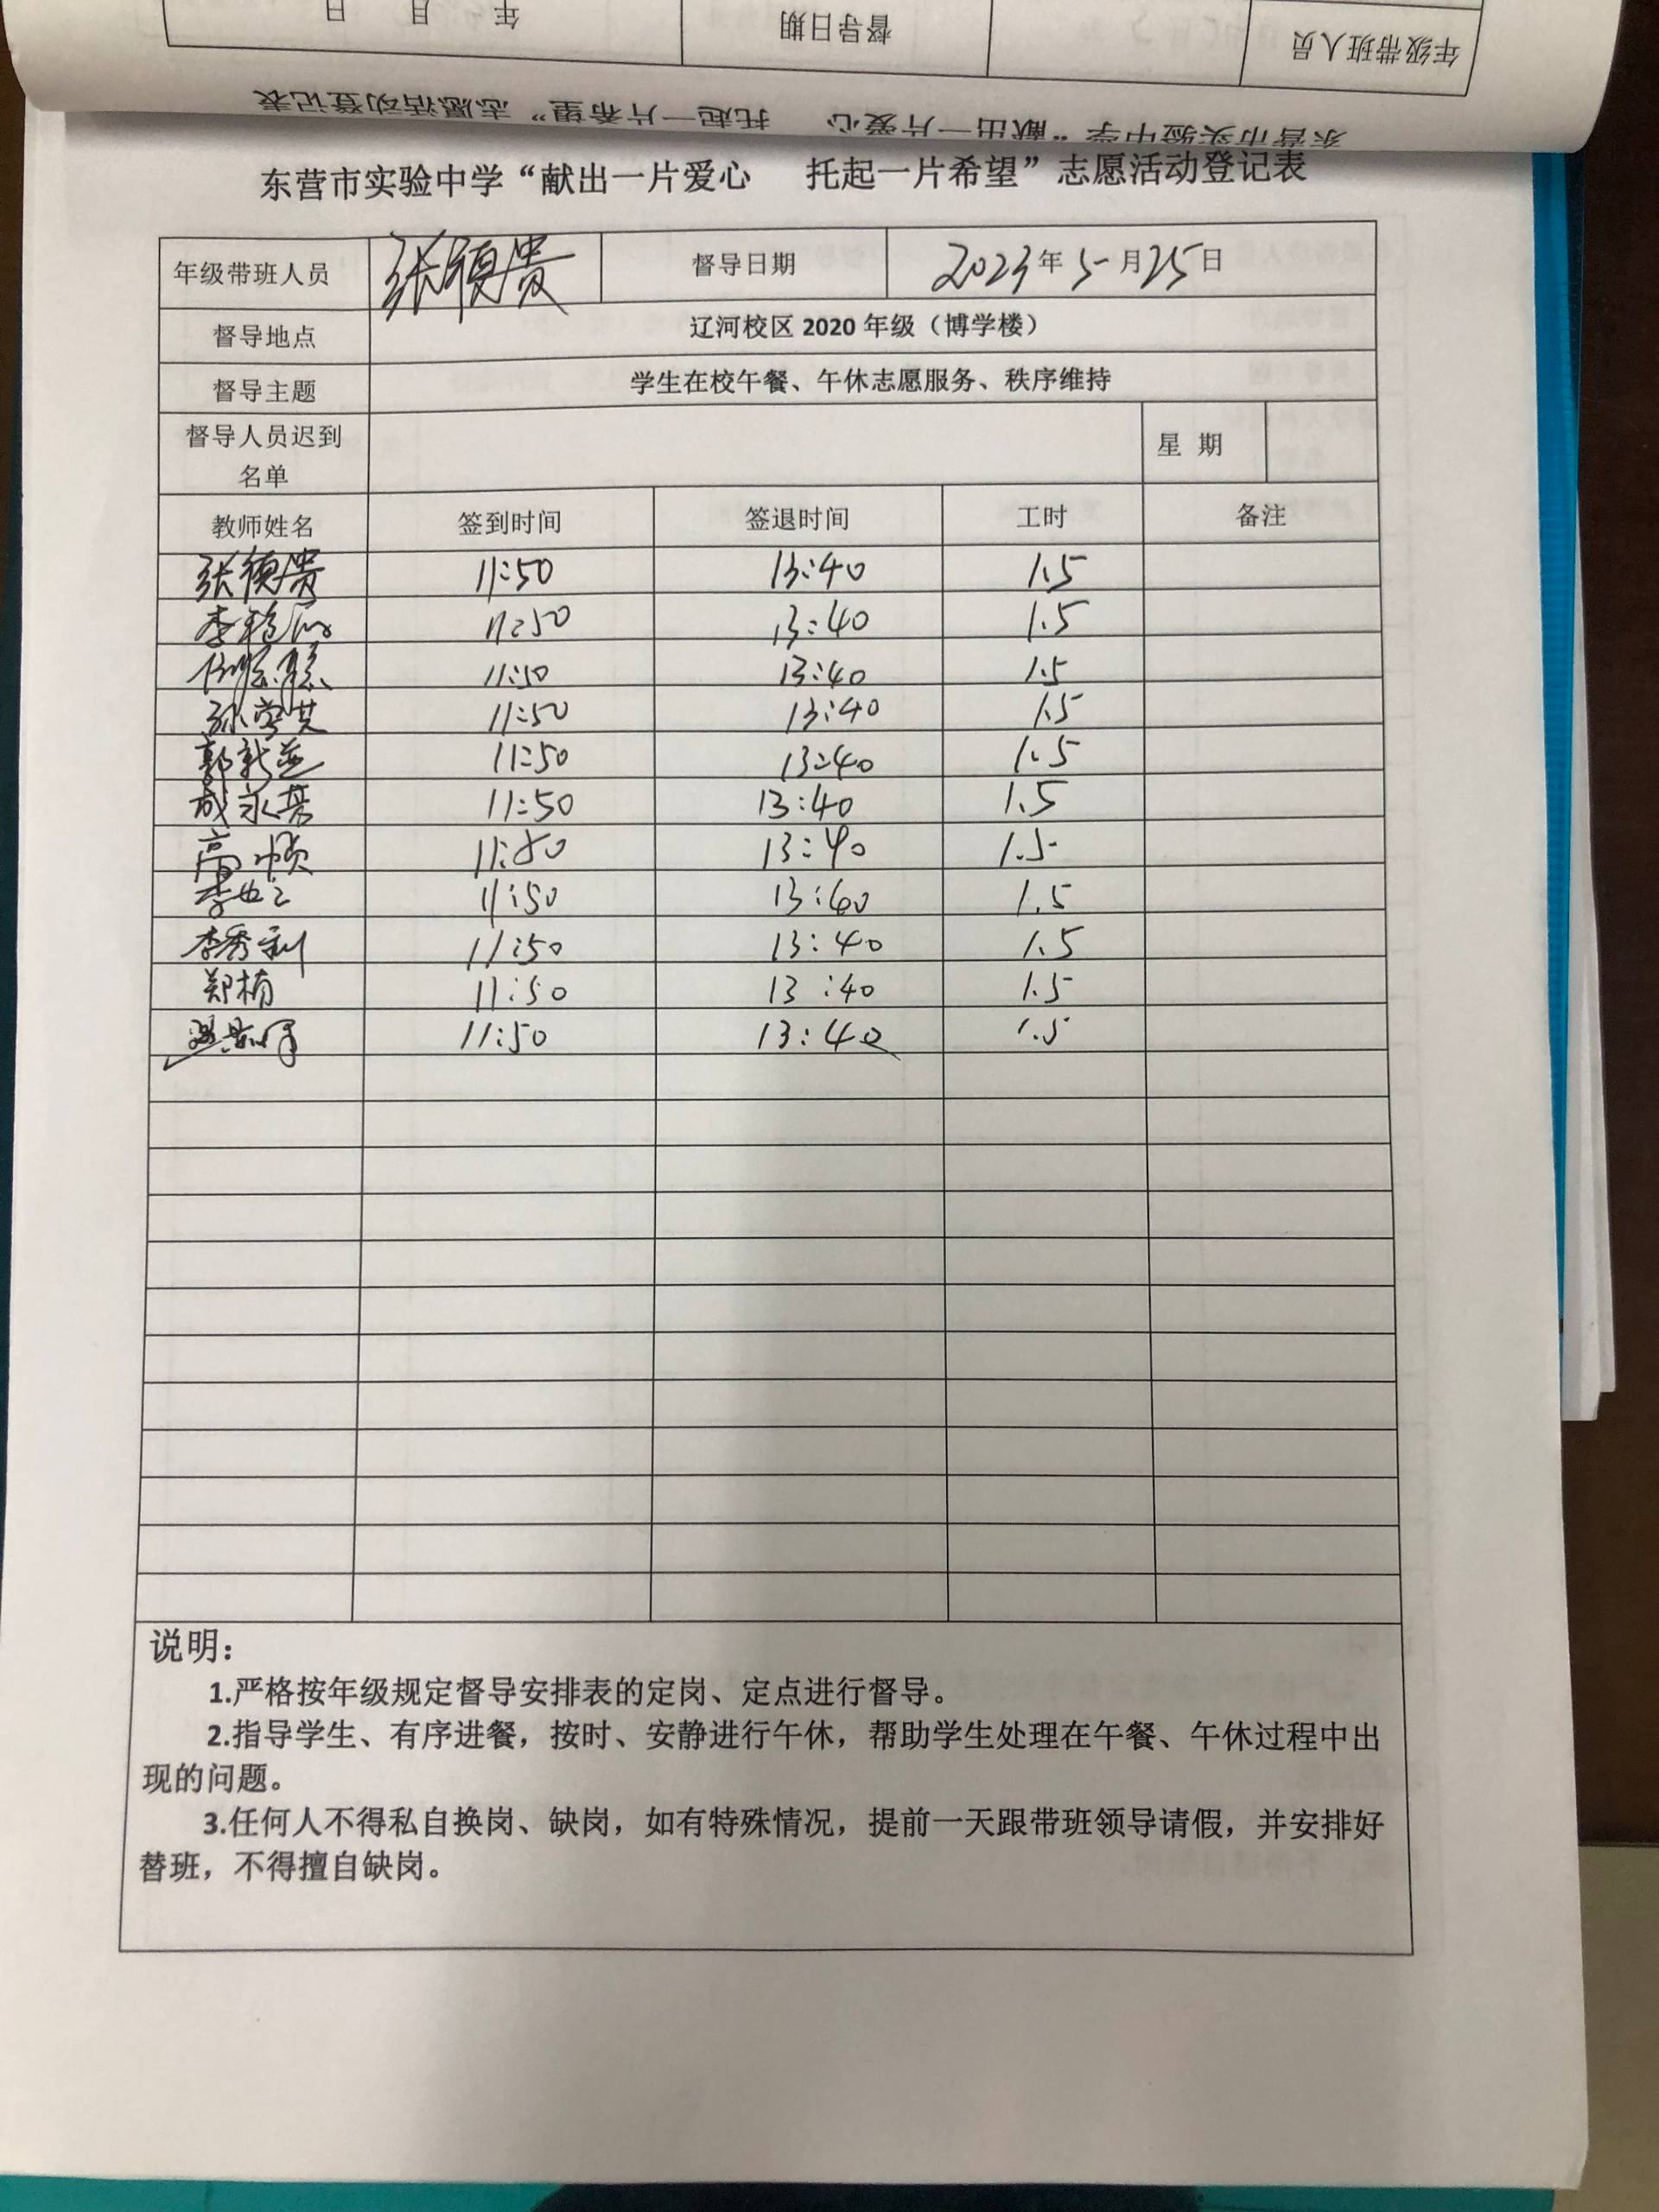 年 月 日 督导日期 年级带班人员
东营市实验中学“献出一片爱心 托起一片希望”志愿活动登记表
东营市实验中学“献出一片爱心 托起一片希望”志愿活动登记表
年级带班人员 张德贵 督导日期 2023年5月25日
督导地点 辽河校区 2020 年级（博学楼）
督导主题 学生在校午餐、午休志愿服务、秩序维持
督导人员迟到 星 期
名单
教师姓名 签到时间 签退时间 工时 备注
张德贵 11:50 13:40 1.5
李艳 11:50 13:40 1.5
11:50 13:40 1.5
孙学其 11:50 13:40 1.5
郭新 11:50 13:40 1.5
成永 11:50 13:40 1.5
高 11:50 13:40 1.5
李 11:50 13:40 1.5
李秀利 11:50 13:40 1.5
郑楠 11:50 13:40 1.5
11:50 13:40 1.5
说明：
1.严格按年级规定督导安排表的定岗、定点进行督导。
2.指导学生、有序进餐，按时、安静进行午休，帮助学生处理在午餐、午休过程中出
现的问题。
3.任何人不得私自换岗、缺岗，如有特殊情况，提前一天跟带班领导请假，并安排好
替班，不得擅自缺岗。